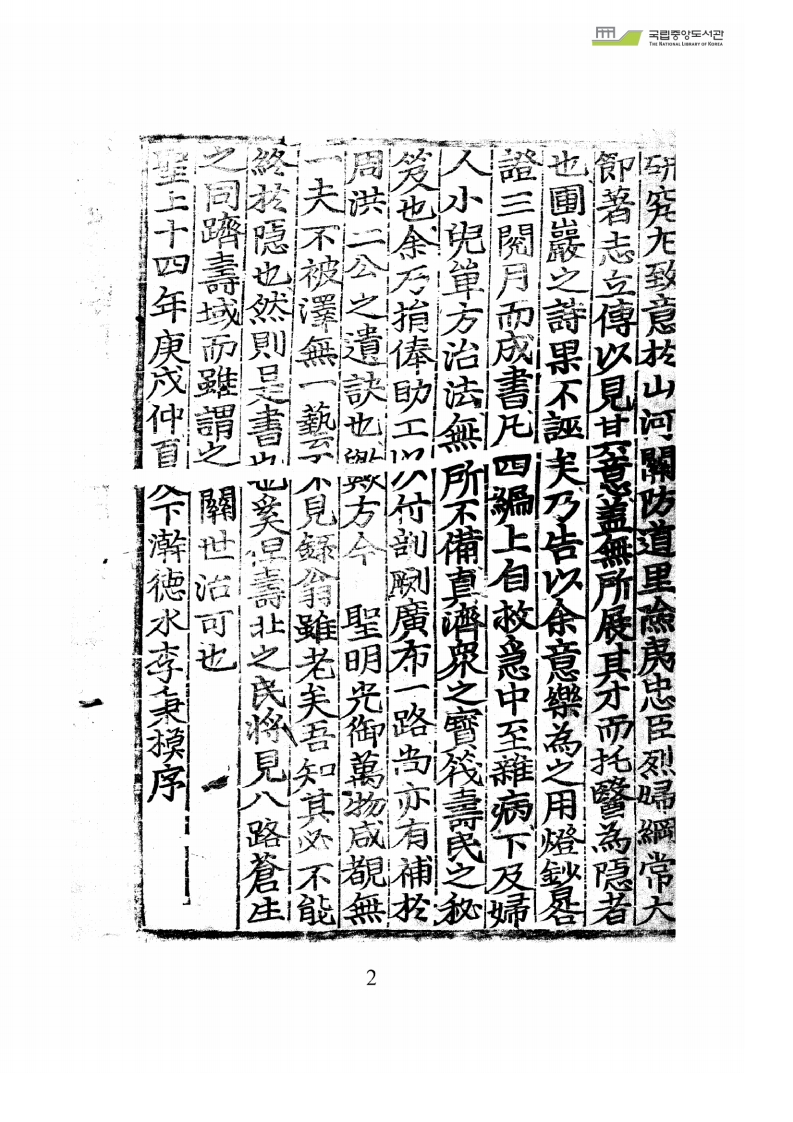 국립중앙도서관
THE NATIONAL LIBRARY OF KOREA
研究尤致意於山河關防道里險夷忠臣烈婦綱常大
節著志立傳以見其意蓋無所展其才而托醫為隱者
也圃巖之詩果不誣矣乃告以余意樂為之用燈鈔晷
證三閱月而成書凡四編上自救急中至雜病下及婦
人小兒單方治法無所不備真濟眾之寶筏壽民之秘
笈也余乃捐俸助工以付剞劂廣布一路尚亦有補於
周洪二公之遺訣也歟方今 聖明光御萬物咸覩無
一夫不被澤無一藝不見錄翁雖老矣吾知其必不能
終於隱也然則是書也奚但壽北之民將見八路蒼生
之同躋壽域而雖謂之 關世治可也
聖上十四年庚戌仲夏 下澣德水李秉模序
2